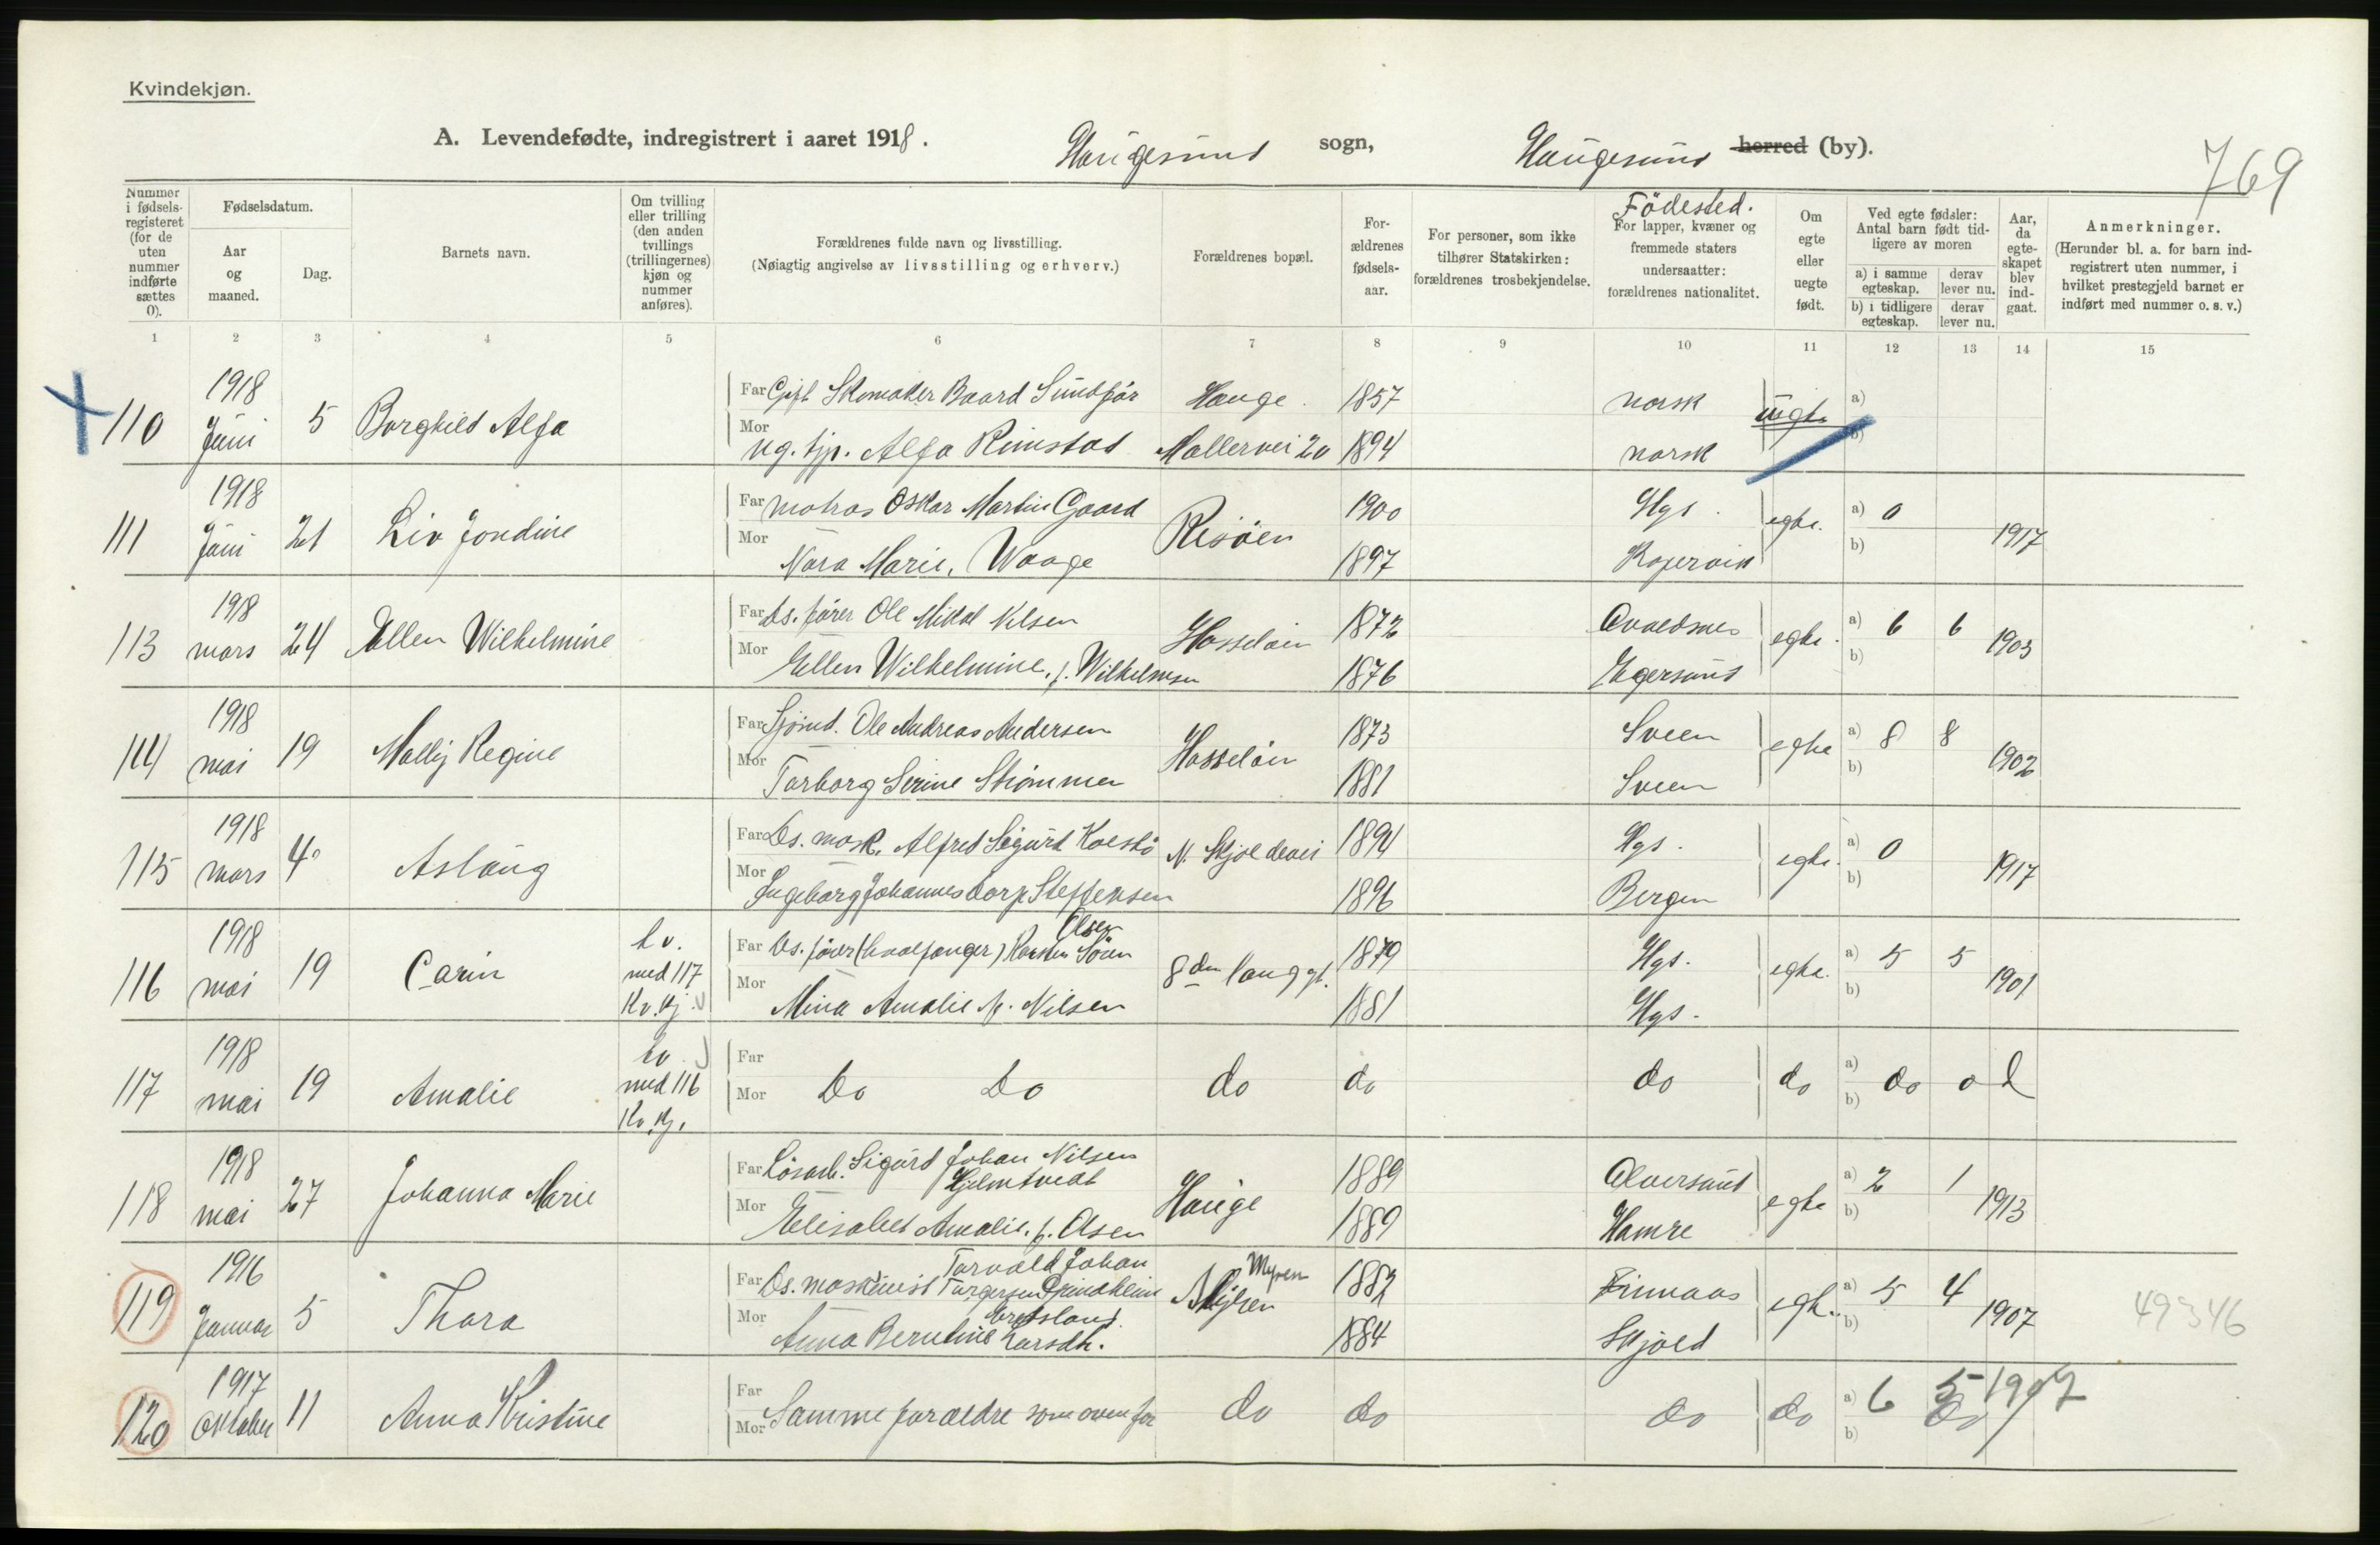 Kvindekjøn.
A. Levendefødte, indregistrert i aaret 1918.
Haugesund sogn, Haugesund herred (by).
769
Nummer i fødselsregisteret (for de uten nummer indførte sættes 0).
Fødselsdatum.
Aar og maaned.
Dag.
Barnets navn.
Om tvilling eller trilling (den anden tvillings (trillingernes) kjøn og nummer anføres).
Forældrenes fulde navn og livsstilling.
(Nøiagtig angivelse av livsstilling og erhverv.)
Forældrenes bopæl.
Forældrenes fødselsaar.
For personer, som ikke tilhører Statskirken: forældrenes trosbekjendelse.
Födested.
For lapper, kvæner og fremmede staters undersaatter: forældrenes nationalitet.
Om egte eller uegte født.
Ved egte fødsler: Antal barn født tidligere av moren
a) i samme egteskap. derav lever nu.
b) i tidligere egteskap. derav lever nu.
Aar, da egteskapet blev indgaat.
Anmerkninger.
(Herunder bl. a. for barn indregistrert uten nummer, i hvilket prestegjeld barnet er indført med nummer o. s. v.)
1 2 3 4 5 6 7 8 9 10 11 12 13 14 15
110 1918 Juni 5 Borghild Alfa
Far Gift Skomaker Baard Sundfør Hauge. 1857 norsk uegte a)
Mor ug. tjp. Alfa Rimstad Møllervei 20 1894 norsk b)
111 1918 Juni 21 Liv Jondine
Far matros Oskar Martin Gaard Risöen 1900 Hgs. egte. a) 0 1917
Mor Nara Marie, Waage 1897 Kopervik b)
113 1918 mars 24 Ellen Wilhelmine
Far Ds. förer Ole Mikal Nilsen Hasselöen 1872 Avaldsnes egte. a) 6 6 1903
Mor Ellen Wilhelmine, f. Wilhelmsen 1876 Egersund b)
114 1918 mai 19 Mally Regine
Far Sjömd. Ole Andreas Andersen Hasselöen 1873 Sveen egte a) 8 8 1902
Mor Torborg Serine Strömmen 1881 Sveen b)
115 1918 mars 4 Aslaug
Far Ds. mask. Alfred Sigurd N. Skjoldevei 1894 Hgs. egte. a) 0 1917
Mor Ingeborg Johannes Steffensen 1896 Bergen b)
116 1918 mai 19 Carin tv. med 117 Kv. kj.
Olsen
Far Ds. förer (hvalfanger) Karsten Sören 8de langgt. 1879 Hgs. egte. a) 5 5 1901
Mor Mina Amalie f. Nilsen 1881 Hgs. b)
117 1918 mai 19 Amalie tv. med 116 Kv. kj.
Far a)
Mor Do Do do do do do b) do
118 1918 mai 27 Johanna Marie
Far Lösarb. Sigurd Johan Nilsen Hauge 1889 Alversund egte a) 2 1 1913
Hjelmtvedt
Mor Elisabet Amalie. f. Olsen 1889 Hamre b)
119 1916 Januar 5 Thora
Torvald Johan Myren
Far Ds. maskinist Torgersen Grindheim 1882 Finnaas egte. a) 5 4 1907 49346
Mor Anna Berntine Larsdt. 1884 Skjold b)
120 1917 Oktober 11 Anna Kristine
Far a) 6 5 1907
Mor Samme foraeldre som ovenfor do do do do b)